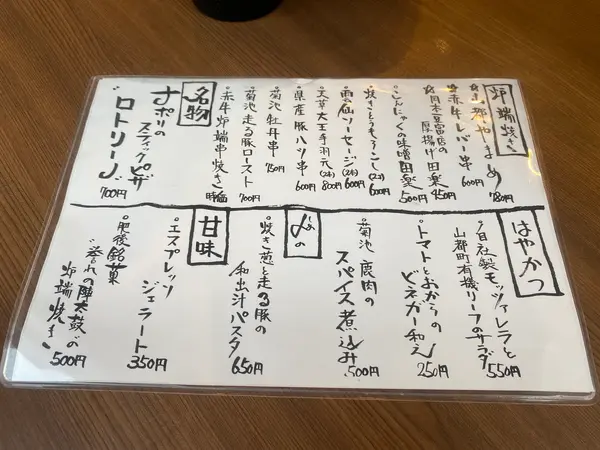 炉端焼き
山都やまめ 780円
赤牛レバー串 600円
岡本豆富店の
厚揚げ田楽 450円
こんにゃくの味噌田楽 500円
焼きとうもろこし(2コ) 600円
雲仙ソーセージ(2本) 600円
天草大王手羽元(2本) 800円
県産豚ハツ串 600円
菊池 牡丹串 750円
菊池 走る豚ロースト 700円
赤牛炉端串焼き 時価
名物
ナポリの
スティックピザ
"ロトリーノ" 700円
はやかつ
自社製モッツァレラと
山都町有機リーフのサラダ 550円
トマトとおからの
ビネガー和え 250円
菊池 鹿肉の
スパイス煮込み 500円
〆の
焼き葱と走る豚の
和出汁パスタ 650円
甘味
エスプレッソ
ジェラート 350円
肥後銘菓
"誉れの陣太鼓"の
炉端焼き 500円